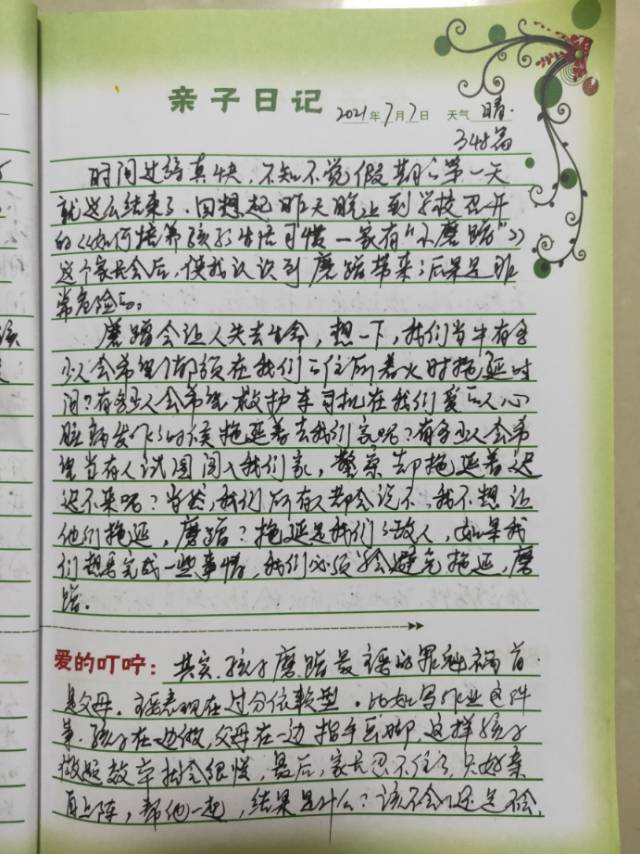 亲子日记 2021年7月7日 天气 晴.
345篇
时间过得真快，不知不觉假期的第一天
就这么结束了，回想起昨天晚上到学校召开
的《如何培养孩子生活习惯一家有"小磨蹭"》
这个家长会后，使我认识到磨蹭带来的后果是非
常危险的。
磨蹭会让人失去生命，想一下，我们当中有多
少人会希望消防员在我们的住所着火时拖延时
间？有多少人会希望救护车司机在我们爱的人心
脏病发作的时候拖延着去我们家呢？有多少人会希
望当有人试图闯入我们家，警察却拖延着迟
迟不来呢？当然，我们所有人都会说不，我不想让
他们拖延，磨蹭？拖延是我们的敌人，如果我
们想要完成一些事情，我们必须学会避免拖延，磨
蹭。
爱的叮咛：其实，孩子磨蹭最主要的罪魁祸首
是父母，主要表现在过分依赖型，比如写作业这件
事，孩子在一边做，父母在一边指手画脚，这样孩子
做题效率就会很慢，最后，家长忍不住了，只好亲
自上阵，帮他一起，结果是什么？该不会的还是不会，